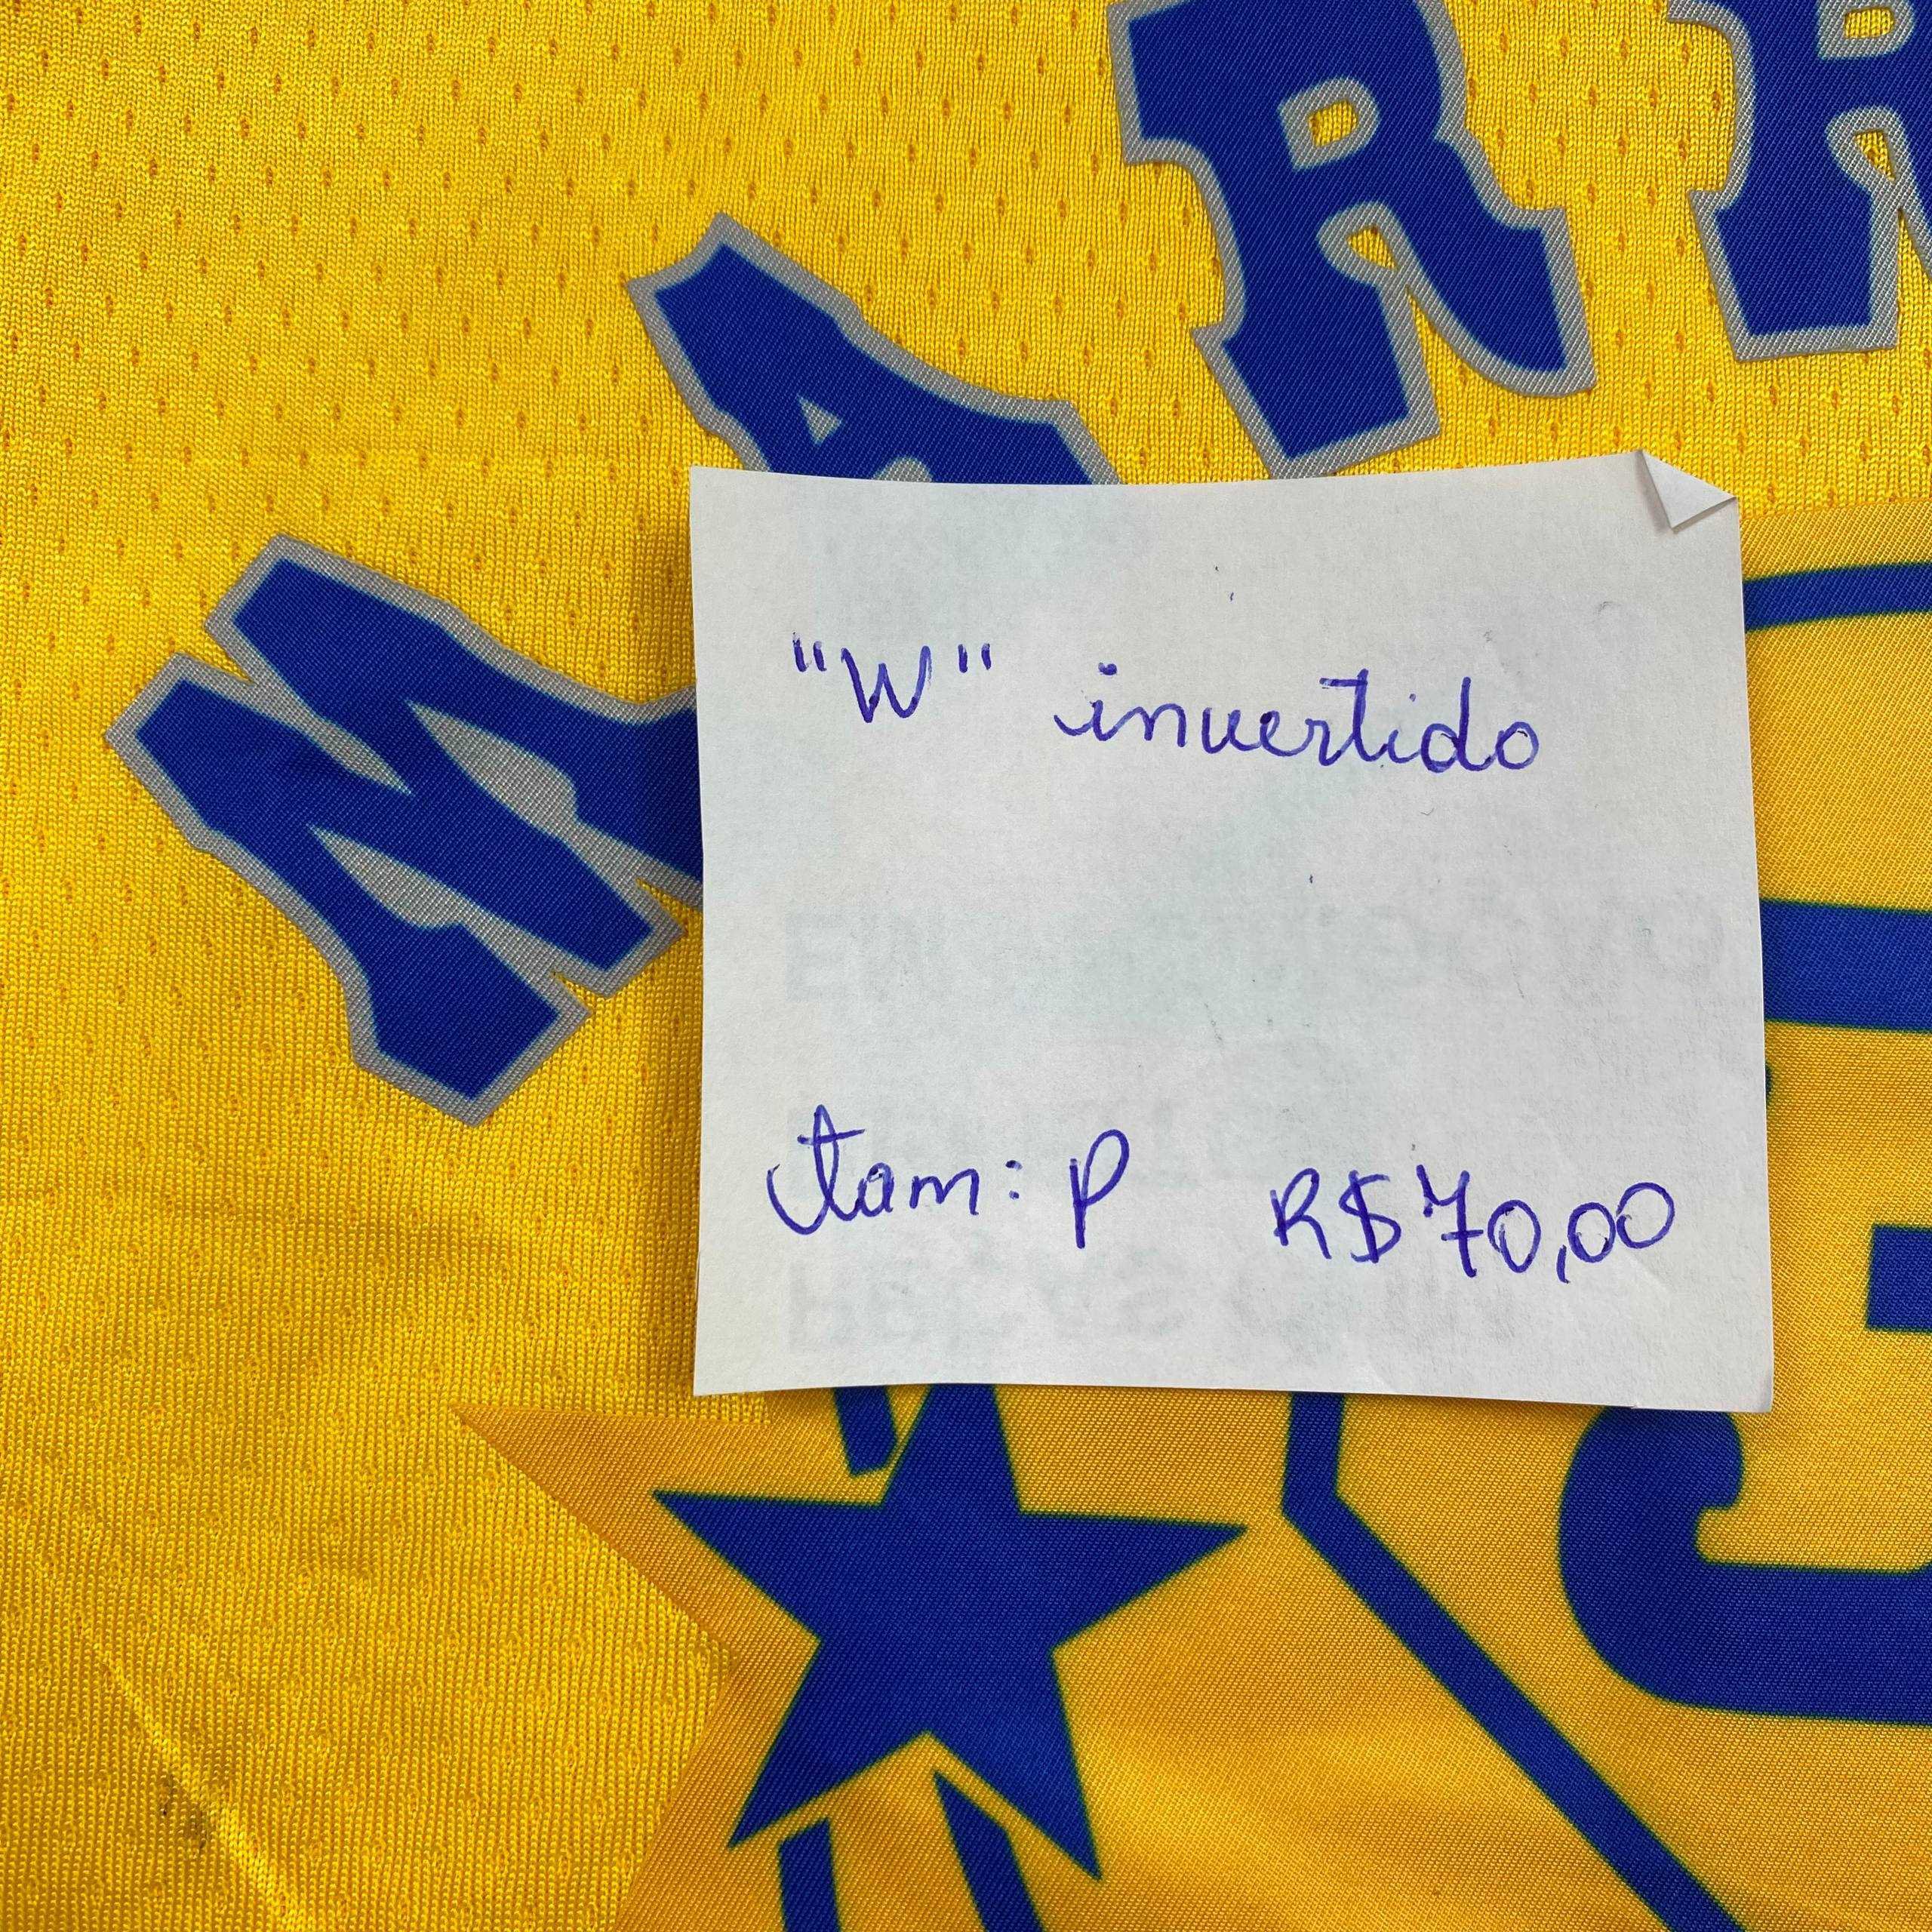 WARR
"W" invertido
tam: P R$70,00